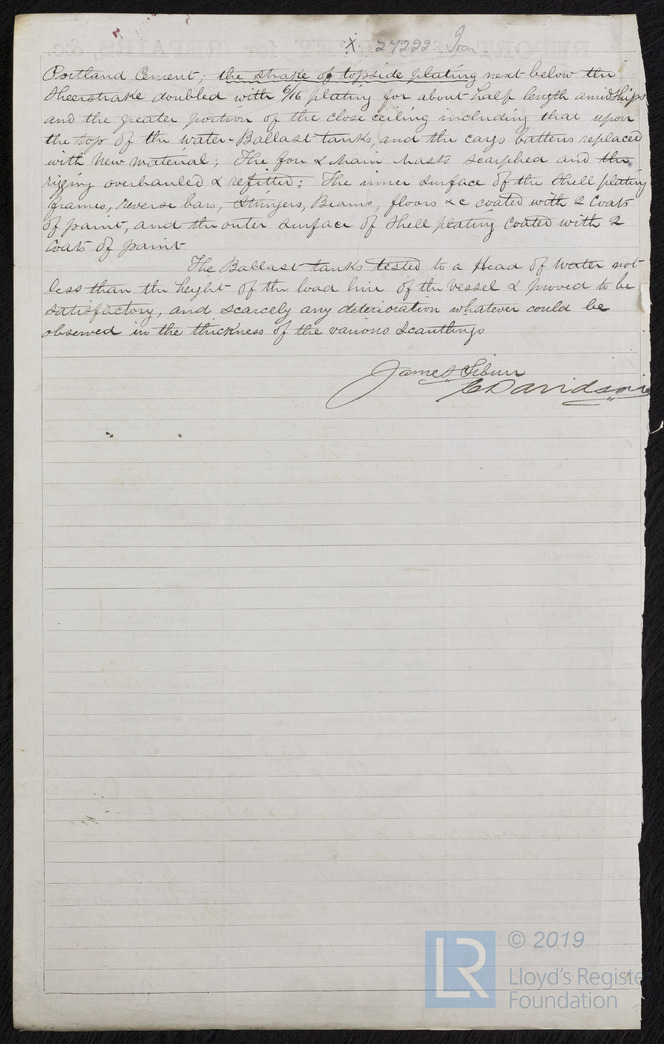 X 27222 Iron
Portland Cement; the strake of topside plating next below the
Sheerstrake doubled with 6/16 plating for about half length amidships
and the greater portion of the close ceiling including that upon
the top of the water Ballast tanks, and the cargo battens replaced
with new material; The fore & Main Masts scarphed and the
rigging overhauled & refitted; The inner surface of the Shell plating
frames, reverse bars, Stringers, Beams, floors &c coated with 2 Coats
of paint, and the outer surface of Shell plating Coated with 2
Coats of paint
The Ballast tanks tested to a Head of water not
less than the height of the load line of the vessel & proved to be
satisfactory, and scarcely any deterioration whatever could be
observed in the thickness of the various scantlings
James
Davidson
© 2019
LR
Lloyd's Registe
Foundation